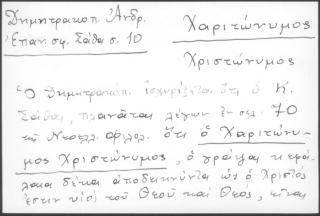 Δημητρακοπ. Ἀνδρ.
Ἐπαν. σφ. Σάθα σ. 10
Χαριτώνυμος
Χριστώνυμος
Ὁ Δημητρακόπ. ἰσχυρίζεται ὅτι ὁ Κ.
Σάθας, πλανᾶται λέγων ἐν σελ. 70
τῆς Νεοελλ. φιλολ. ὅτι ὁ Χαριτώνυ-
μος Χριστώνυμος, ὁ γράψας κεφά-
λαια δέκα ἀποδεικνύντα ὡς ὁ Χριστός
ἐστιν υἱός τοῦ Θεοῦ καὶ Θεός, εἶναι